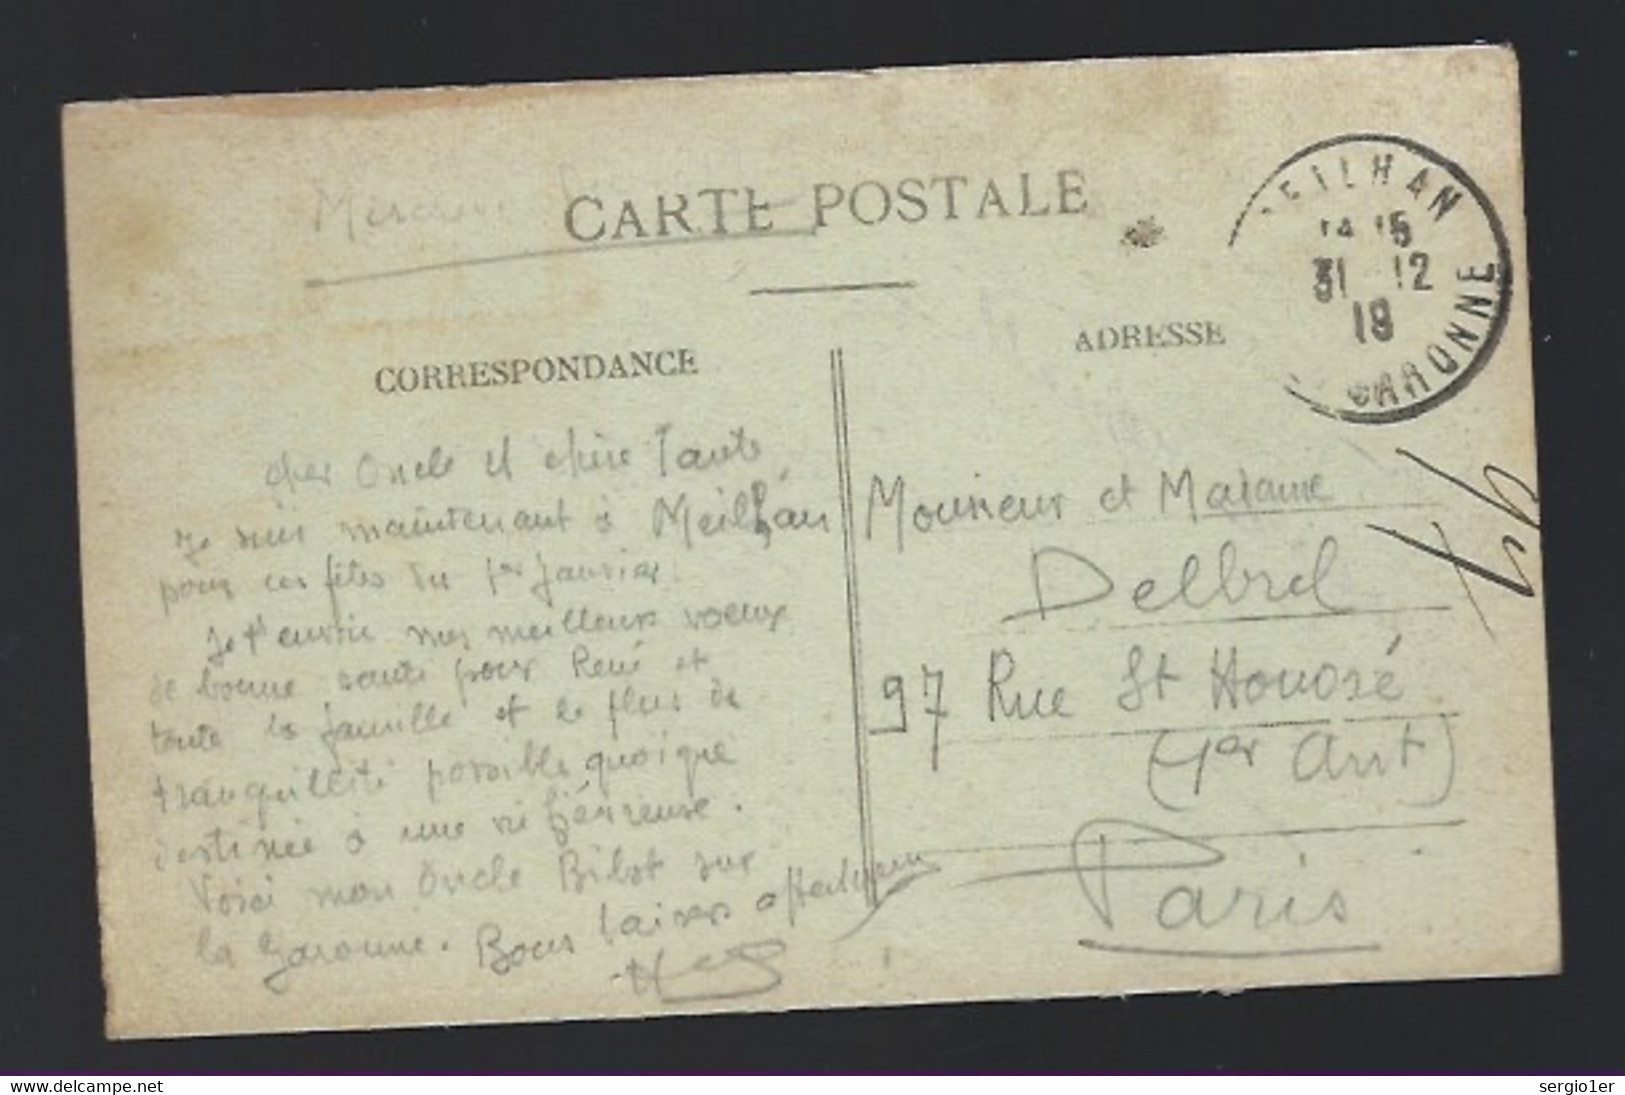 CARTE POSTALE
CORRESPONDANCE
ADRESSE
MEILHAN
14 15
31 12
19
GARONNE
cher Oncle et chère Tante
Je suis maintenant à Meilhan
pour les fêtes du 1er Janvier.
Je t'envoie mes meilleurs voeux
de bonne santé pour René et
toute la famille et le plus de
tranquillité possible quoique
destinée à une vie fiévreuse.
Voici mon Oncle Bibot sur
la Garonne. Bons baisers affectueux
Monsieur et Madame
Delbrel
97 Rue St Honoré
(1er Arrt)
Paris
www.delcampe.net
sergio1er